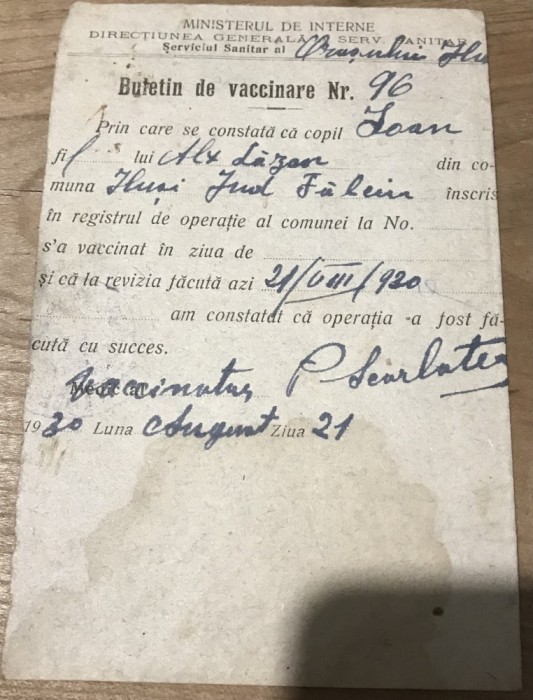 MINISTERUL DE INTERNE
DIRECȚIUNEA GENERALĂ A SERV. SANITAR
Serviciul Sanitar al Orașului Huși
Buletin de vaccinare Nr. 96
Prin care se constată că copil Ioan
fil lui Alx Lăzan din co-
muna Huși Jud Fălciu înscris
în registrul de operație al comunei la No.
s'a vaccinat în ziua de
și că la revizia făcută azi 21/VIII/920
am constatat că operația -a fost fă-
cută cu succes.
Vaccinator P Scarlatescu
1930 Luna August Ziua 21